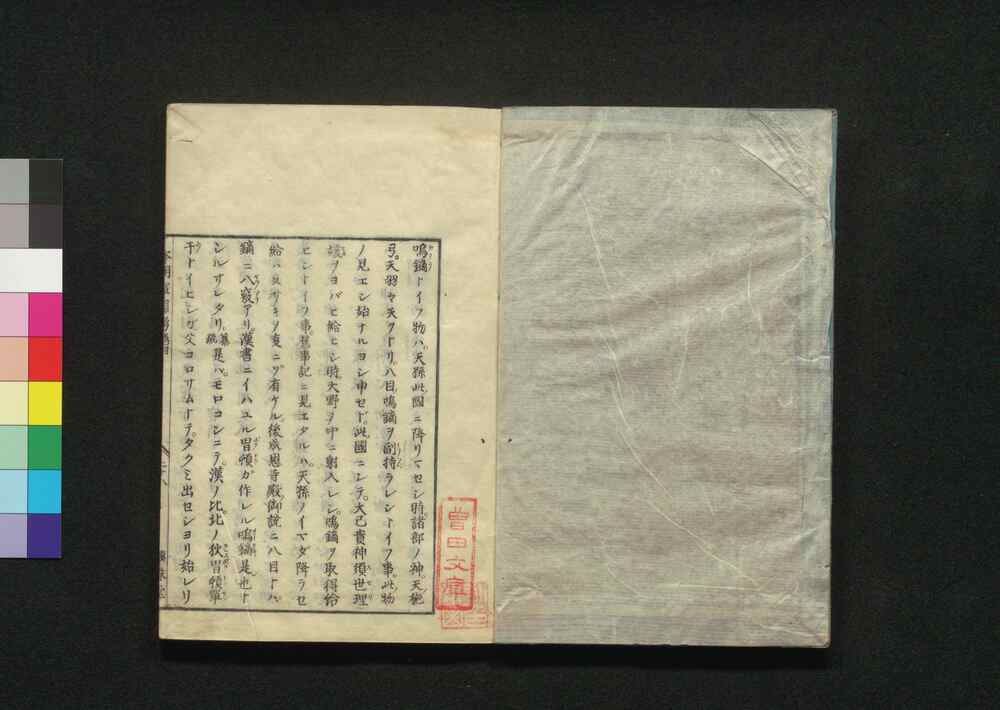 鳴鏑トイフ物ハ天孫此國ニ降リマセシ時諸部ノ神天梔
弓天羽々矢ヲトリ八目鳴鏑ヲ副持ラレシトイフ事此物
ノ見エシ始ナルヨシ申セド此國ニシテ大己貴神須世理
姫ヲヨバヒ給ヒシ時大野ノ中ニ射入レシ鳴鏑ヲ取得給
ヒシトイフ事舊事記ニ見エタルハ天孫ノイマダ降ラセ
給ハヌサキノ事ニゾ有ケル後成恩寺殿御説ニ八目トハ
鏑ニ八竅アリ漢書ニイハユル冒頓ガ作レル鳴鏑是也ト
シルサレタリ 是ハモロコシニテ漢ノ比北ノ狄冒頓單
于トイヒシガ父コロサムトテタクミ出セシヨリ始レリ
本朝軍器考
曾田文庫